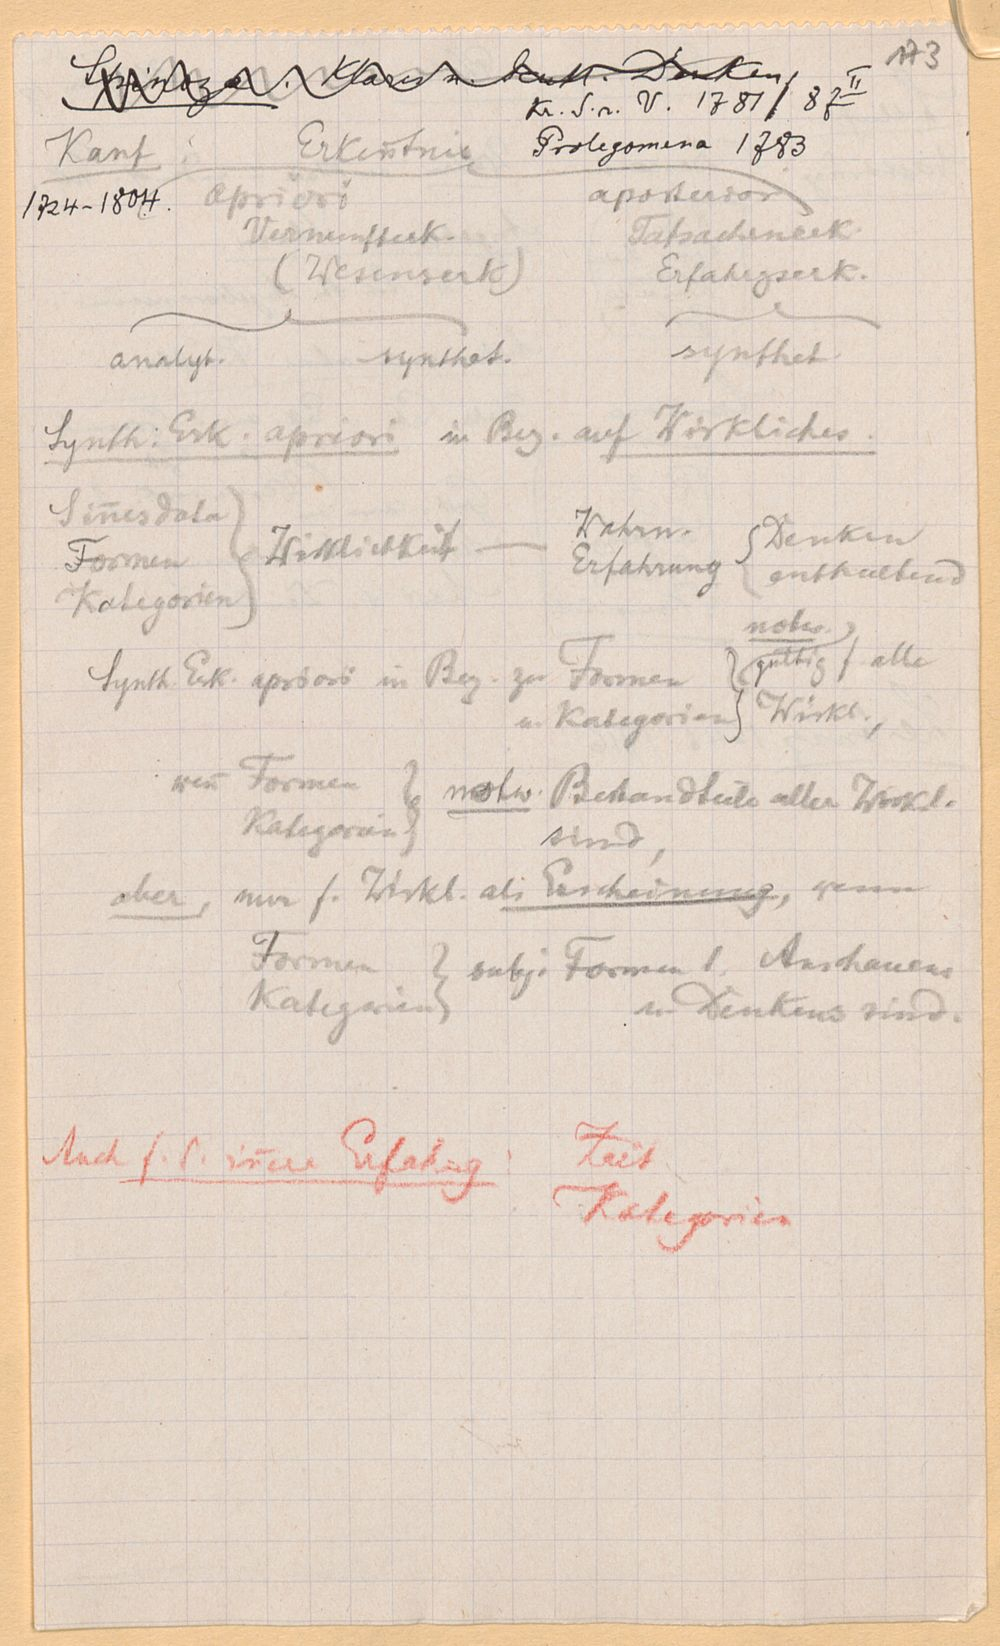 173
Spinoza. Klares u. deutl. Denken,
Kr. d. r. V. 1781/87 II
Kant: Erken̅tnis Prolegomena 1783
1724–1804. apriori aposterior
Vernunfterk. Tatsachenerk.
(Wesenserk) Erfahrgserk.
analyt. synthet. synthet
Synth: Erk. apriori in Bez. auf Wirkliches.
Sin̅esdata
Formen
Kategorien
Wirklichkeit —
Wahrn.
Erfahrung
Denken
enthaltend
notw.
Synth Erk. apriori in Bez. zu Formen gültig f. alle
u. Kategorien Wirkl.,
wen̅ Formen
Kategorien
notw. Bestandteile aller Wirkl.
sind,
aber, nur f. Wirkl. als Erscheinung, wenn
Formen
Kategorien
subj. Formen d. Anschauens
u. Denkens sind.
Auch f. d. in̅ere Erfahrg: Zeit
Kategorien